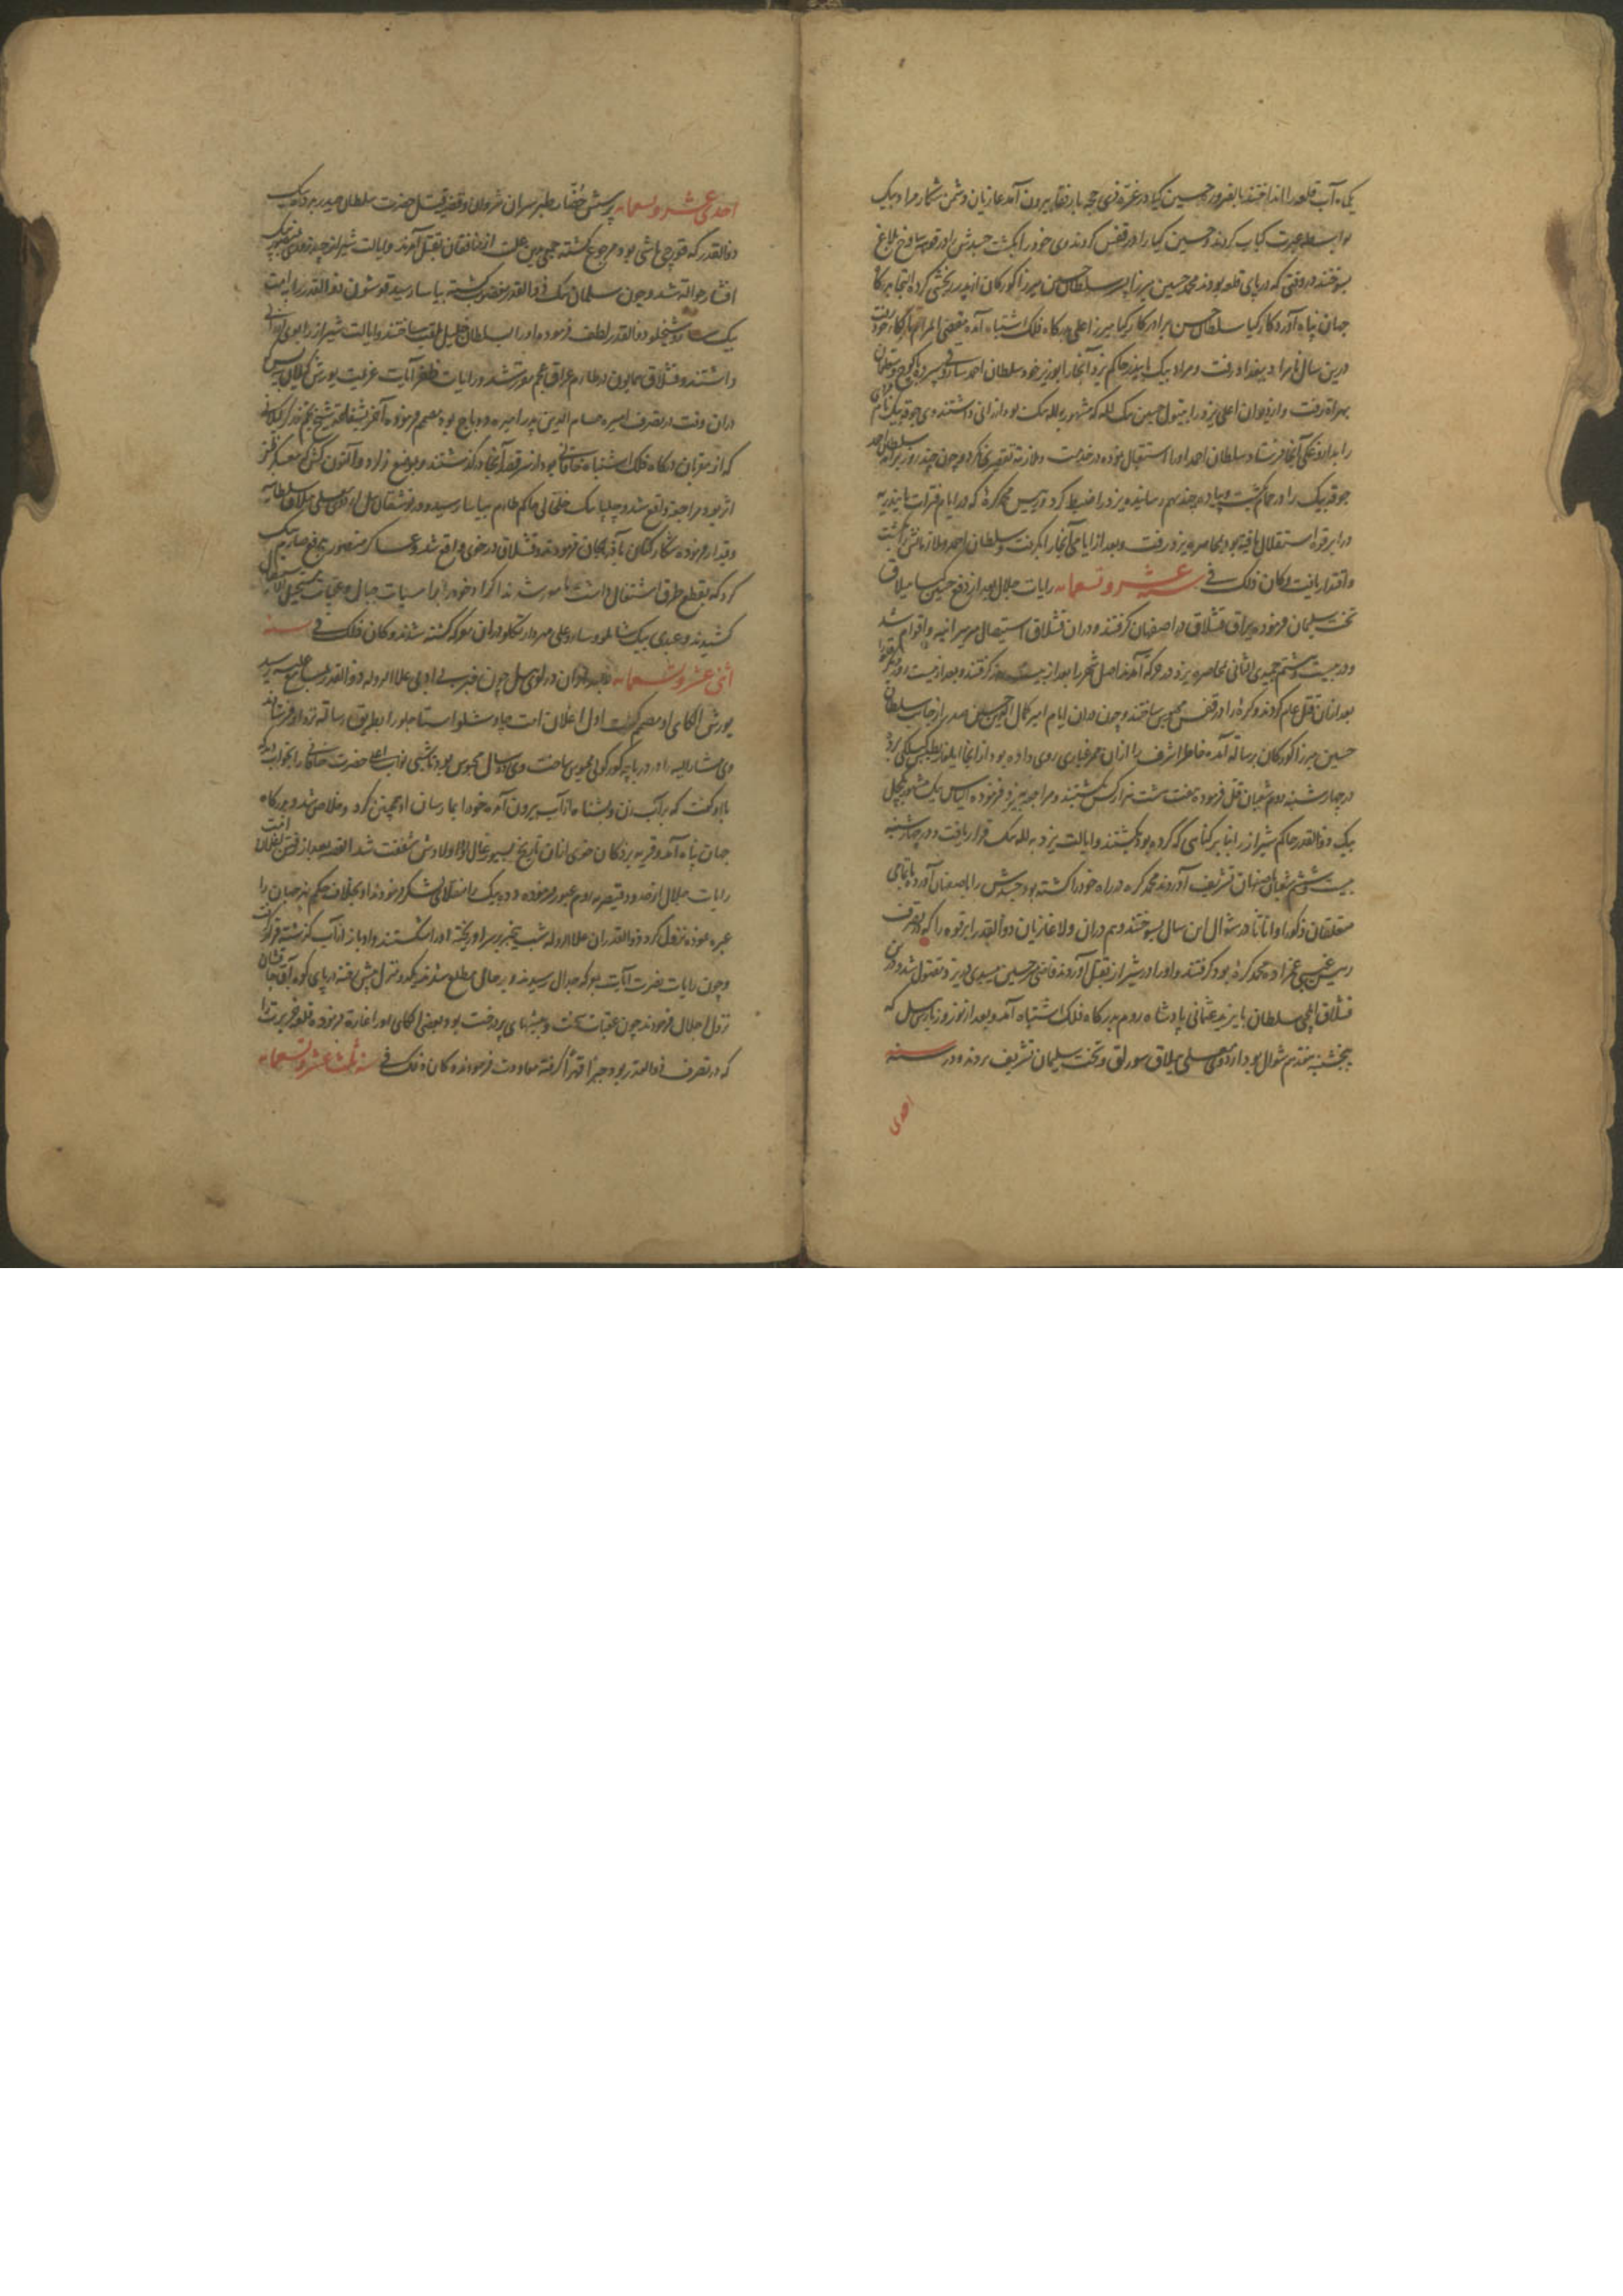 یکماه آب قلعه را انداختند بالضروره حسین کیا در غره ذی حجه با رفقا بیرون آمد غازیان دشمن شکار مراد بیک
بواسطه عبرت کباب کردند و حسین کیا را در قفس کردند وی خود را بکشت جسدش را در قوشه فرخ بلاغ
بسوختند در وقتی که در پای قلعه بودند محمد حسین میرزا پسر سلطان حسین میرزا کورکان از پدر رنجشی کرده التجا بدرگاه
جهان پناه آورد کارکیا سلطان حسن برادر کارکیا میرزا علی بدرگاه فلک اشتباه آمده مقضی المرام بازگاه خود رفت
درین سال نامراد ببغداد رفت و مراد بیک بایندر حاکم یزد آنجا را بوزیر خود سلطان احمد ساروی سپرده
بهراة رفت و از دیوان اعلی یزد را بتیول حسین بیک لله که مشهور بلله بیک بود ارزانی داشتند وی جوقه بیک نام
را بداروغگی آنجا فرستاد سلطان احمد او را استقبال نموده در خدمت و ملازمت تقصیری نکرد و چون چند روز برآمد سلطان احمد
جوقه بیک را در حمام بکشت و پیاده چند بهم رسانیده یزد را ضبط کرد و رئیس محمد کره که در ایام فترات بایندریه
در ابرقوه استقلال یافته بود بمحاصره یزد رفت و بعد از ایامی آنجا را بگرفت و سلطان احمد و ملازمانش را بکشت
و اقتدار یافت و کان ذلک فی سنه عشر و تسعمائه رایات جلال بعد از دفع حسین کیا ییلاق
تخت سلیمان فرموده یراق قشلاق در اصفهان گرفتند و در آن قشلاق استیصال میرمیرانیه و اقوام شد
و در بیست و ششم جمیدی الثانی محاصره یزد در حرکه آمدند اصل شهر را بعد از بیست روز گرفتند و بعد از بیست روز دیگر
بعد از آن قتل عام کردند و کره را در قفس محبوس ساختند و چون در آن ایام امیر کمال الدین حسین صدر از جانب سلطان
حسین میرزا کورکان برسالت آمده خاطر اشرف را از آن ممر غباری روی داده بود از آنجا ایلغار بطبس گیلکی برد
در چهارشنبه دوم شعبان قتل فرموده هفت هشت هزار کس کشتند و مراجعه بیزد فرموده الیاس بیک مشهور بکچل
بیک ذوالقدر حاکم شیراز را بنا بر گناهی که کرده بود بکشتند و ایالت یزد به لله بیک قرار یافت و در چهارشنبه
بیست و ششم شعبان باصفهان تشریف آوردند محمد کره در راه خود را کشته بود جسدش را باصفهان آورده با تمامی
متعلقان ذکورا و اناثا در شوال این سال بسوختند و هم در آن ولا غازیان ذوالقدر ابرقوه را که در تصرف
رئیس غیبی عمزاده محمد کره بود گرفتند و او را در شیراز بقتل آوردند قاضی میر حسین میبدی در یزد مقتول شد و در این
قشلاق ایلچی سلطان بایزید عثمانی پادشاه روم بدرگاه فلک اشتباه آمد و بعد از نوروز بارس ئیل که
پنجشنبه هفدهم شوال بود از اردوی معلی ییلاق سورلق و تخت سلیمان تشریف بردند و در سنه
احدی
احدی عشر و تسعمائه پرسش حُضّار طبرسران شروان و قضیه قتل حضرت سلطان حیدر به ده بیک
ذوالقدر که قورچی باشی بود مرجوع گشته جمعی بدین علت از منافقان بقتل آمدند و ایالت شیراز چند روزی بمنصور بیک
افشار حواله شد و چون سلمان بیک ذوالقدر مغضوب گشته بیاسا رسید قوشون ذوالقدر را به امت
بیک ساروشیخلو ذوالقدر لطف فرموده او را بسلطان خلیل ملقب ساختند و ایالت شیراز را بوی ارزانی
داشتند و قشلاق همایون در طارم عراق عجم مقرر شد و رایات ظفر آیات عزیمت یورش گیلان بیه پس
در آن وقت در تصرف امیره حسام الدین پدر امیره دوباج بوده مصمم فرموده آخر بشفاعت شیخ نجم زرگر گیلانی
که از مقربان درگاه فلک اشتباه خاقانی بود از سر قصد آنجا درگذشتند و بوضع زاد و آلتون کش که معسکر ظفر
اثر بود مراجعه واقع شد و چلپا بیک خلخالی حاکم طارم بیاسا رسید و در یونت ئیل اردوی معلی ییلاق سلطانیه
و قیدار فرموده شکار کنان بآذربیجان فرمودند و قشلاق در خوی واقع شد و عساکر منصور بدفع صارم بیک
کرد که بقطع طرق اشتغال داشت مامور شدند اکراد خود را براسیات جبال و عقبات مستحیل الانتقال
کشیدند و عبدی بیک شاملو و سارو علی مهردار تکلو در آن معرکه کشته شدند و کان ذلک فی سنه
اثنی عشر و تسعمائه بعد از آن در قوی ئیل چون خبر بی ادبی علاالدوله ذوالقدر بمسامع علیه رسید
یورش الکای او مصمم گشت اول اغلان امت چاوشلو استاجلو را بطریق رسالت نزد او فرستادند
وی مشارالیه را در دریاچه کورکونی محبوس ساخت وی دو سال محبوس بود تا شبی نواب اعلی حضرت خاقانی را بخواب دید که
با او گفت که بر آب زن و بشناه از آب بیرون آمده خود را بما رسان او همچنین کرد و خلاصی شد و بدرگاه
جهان پناه آمد و قریه بردکان خوی از آن تاریخ بسیورغال او و اولادش شفقت شد القصه بعد از فتن اغلان امت
رایات جلال از حدود قیصریه روم عبور فرموده دده بیک را منقلای لشکر فرمودند او بخلاف حکم نهر جیحان را
عبره نموده نزول کرد ذوالقدران علاالدوله شب بیخبر بر سر او ریخته او را شکستند و او باز از آب گذشته قرار گرفت
و چون رایات نصرت آیات بمعرکه جدال رسیدند و بر حال مطلع شدند یکدو منزل پیش رفته در پای کوه آق جا داشان
نزول اجلال فرمودند چون عقبات سخت و بیشهای پردرخت بود بعضی الکای او را غارة فرموده قلعه خرپرت را
که در تصرف ذوالقدر بود جبرا قهرا گرفته معاودت فرمودند و کان ذلک فی سنه ثلث عشر و تسعمائه